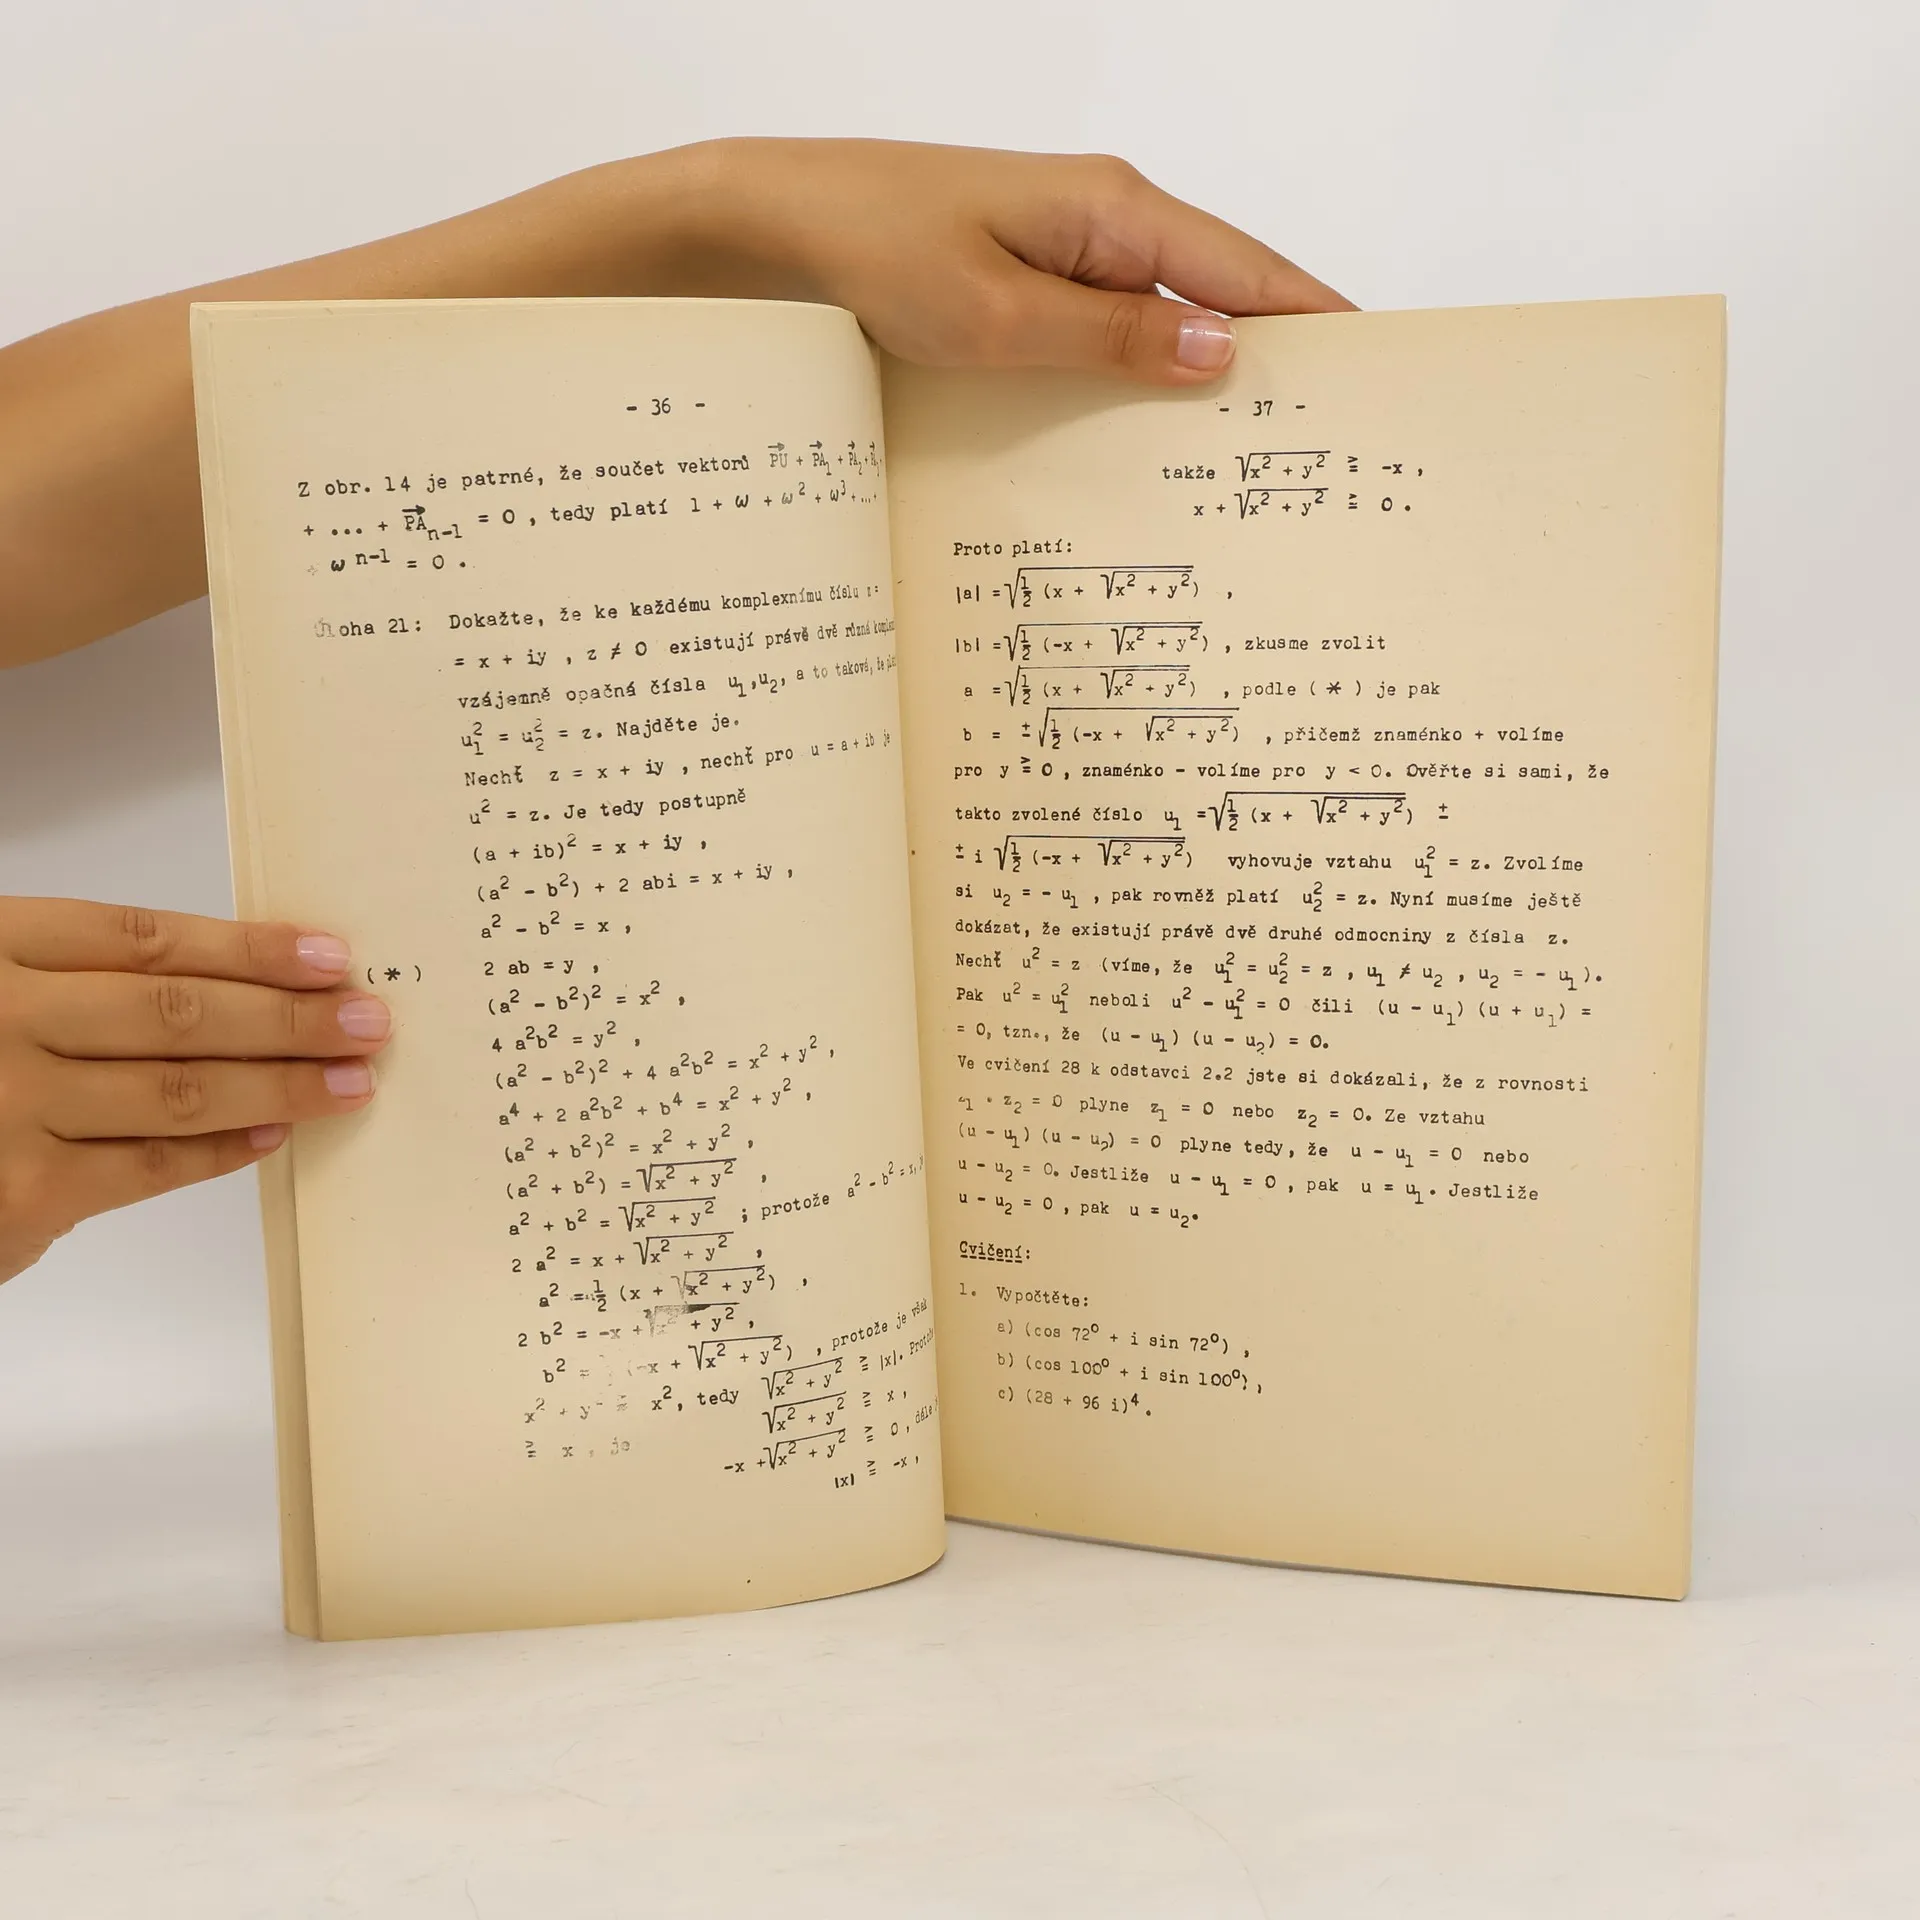 - 36 -
Z obr. 14 je patrné, že součet vektorů PU + PA₁ + PA₂ +
+ ... + PAₙ₋₁ = 0 , tedy platí 1 + ω + ω² + ω³ + ... +
+ ωⁿ⁻¹ = 0 .
Úloha 21: Dokažte, že ke každému komplexnímu číslu z =
= x + iy , z ≠ 0 existují právě dvě různá
vzájemně opačná čísla u₁,u₂, a to taková, že
u₁² = u₂² = z. Najděte je.
Nechť z = x + iy , nechť pro u = a + ib je
u² = z. Je tedy postupně
(a + ib)² = x + iy ,
(a² - b²) + 2 abi = x + iy ,
a² - b² = x ,
(*) 2 ab = y ,
(a² - b²)² = x² ,
4 a²b² = y² ,
(a² - b²)² + 4 a²b² = x² + y² ,
a⁴ + 2 a²b² + b⁴ = x² + y² ,
(a² + b²)² = x² + y² ,
(a² + b²) = √(x² + y²) ,
a² + b² = √(x² + y²) ; protože a² - b² = x,
2 a² = x + √(x² + y²) ,
a² = ½ (x + √(x² + y²)) ,
2 b² = -x + √(x² + y²) ,
b² = (-x + √(x² + y²)) , protože je však
x² + y² ≧ x², tedy √(x² + y²) ≧ |x|. Protože
√(x² + y²) ≧ x ,
≧ x , je
-x + √(x² + y²) ≧ 0 , dále
|x| ≧ -x ,
- 37 -
takže √(x² + y²) ≧ -x ,
x + √(x² + y²) ≧ 0 .
Proto platí:
|a| = √(½ (x + √(x² + y²))) ,
|b| = √(½ (-x + √(x² + y²))) , zkusme zvolit
a = √(½ (x + √(x² + y²))) , podle (*) je pak
b = ± √(½ (-x + √(x² + y²))) , přičemž znaménko + volíme
pro y ≧ 0 , znaménko - volíme pro y < 0. Ověřte si sami, že
takto zvolené číslo u₁ = √(½ (x + √(x² + y²))) ±
± i √(½ (-x + √(x² + y²))) vyhovuje vztahu u₁² = z. Zvolíme
si u₂ = - u₁ , pak rovněž platí u₂² = z. Nyní musíme ještě
dokázat, že existují právě dvě druhé odmocniny z čísla z.
Nechť u² = z (víme, že u₁² = u₂² = z , u₁ ≠ u₂ , u₂ = - u₁).
Pak u² = u₁² neboli u² - u₁² = 0 čili (u - u₁) (u + u₁) =
= 0, tzn., že (u - u₁) (u - u₂) = 0.
Ve cvičení 28 k odstavci 2.2 jste si dokázali, že z rovnosti
z₁ . z₂ = 0 plyne z₁ = 0 nebo z₂ = 0. Ze vztahu
(u - u₁) (u - u₂) = 0 plyne tedy, že u - u₁ = 0 nebo
u - u₂ = 0. Jestliže u - u₁ = 0 , pak u = u₁. Jestliže
u - u₂ = 0 , pak u = u₂.
Cvičení:
1. Vypočtěte:
a) (cos 72° + i sin 72°) ,
b) (cos 100° + i sin 100°) ,
c) (28 + 96 i)⁴ .